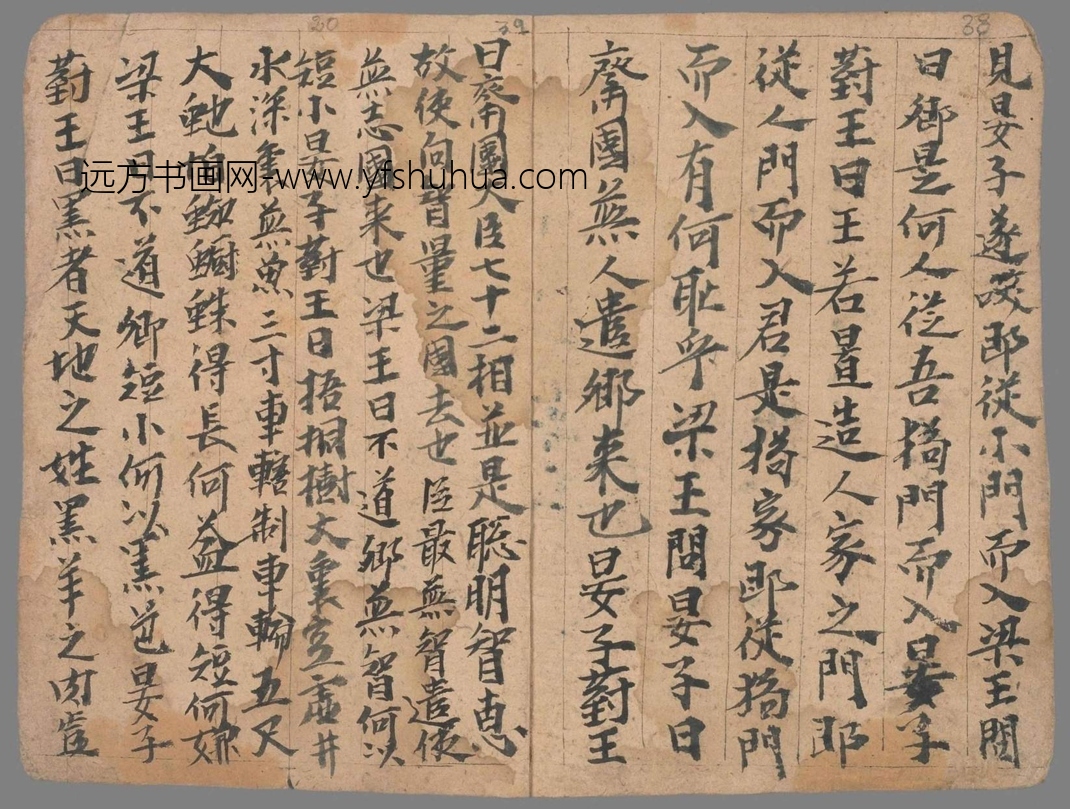 38
見晏子遂唆即從小門而入梁王問
曰卿是何人從吾猗門而入晏子
對王曰王若置造人家之門即
從人門而入君是猗家即從猗門
而入有何恥乎梁王問晏子曰
齊國無人遣卿來也晏子對王
39
曰齊國大臣七十二相並是聡明智惠
故使向智量之國去也臣最無智遣使
無志國来也梁王曰不道卿無智何以
短小晏子對王曰梧桐樹大裏空虛井
水深裏無魚三寸車轄制車輪五尺
大虵怕蜘蛛得長何益得短何嫌
梁王曰不道卿短小何以黑色晏子
對王曰黑者天地之姓黑羊之肉豈
远方书画网-www.yfshuhua.com